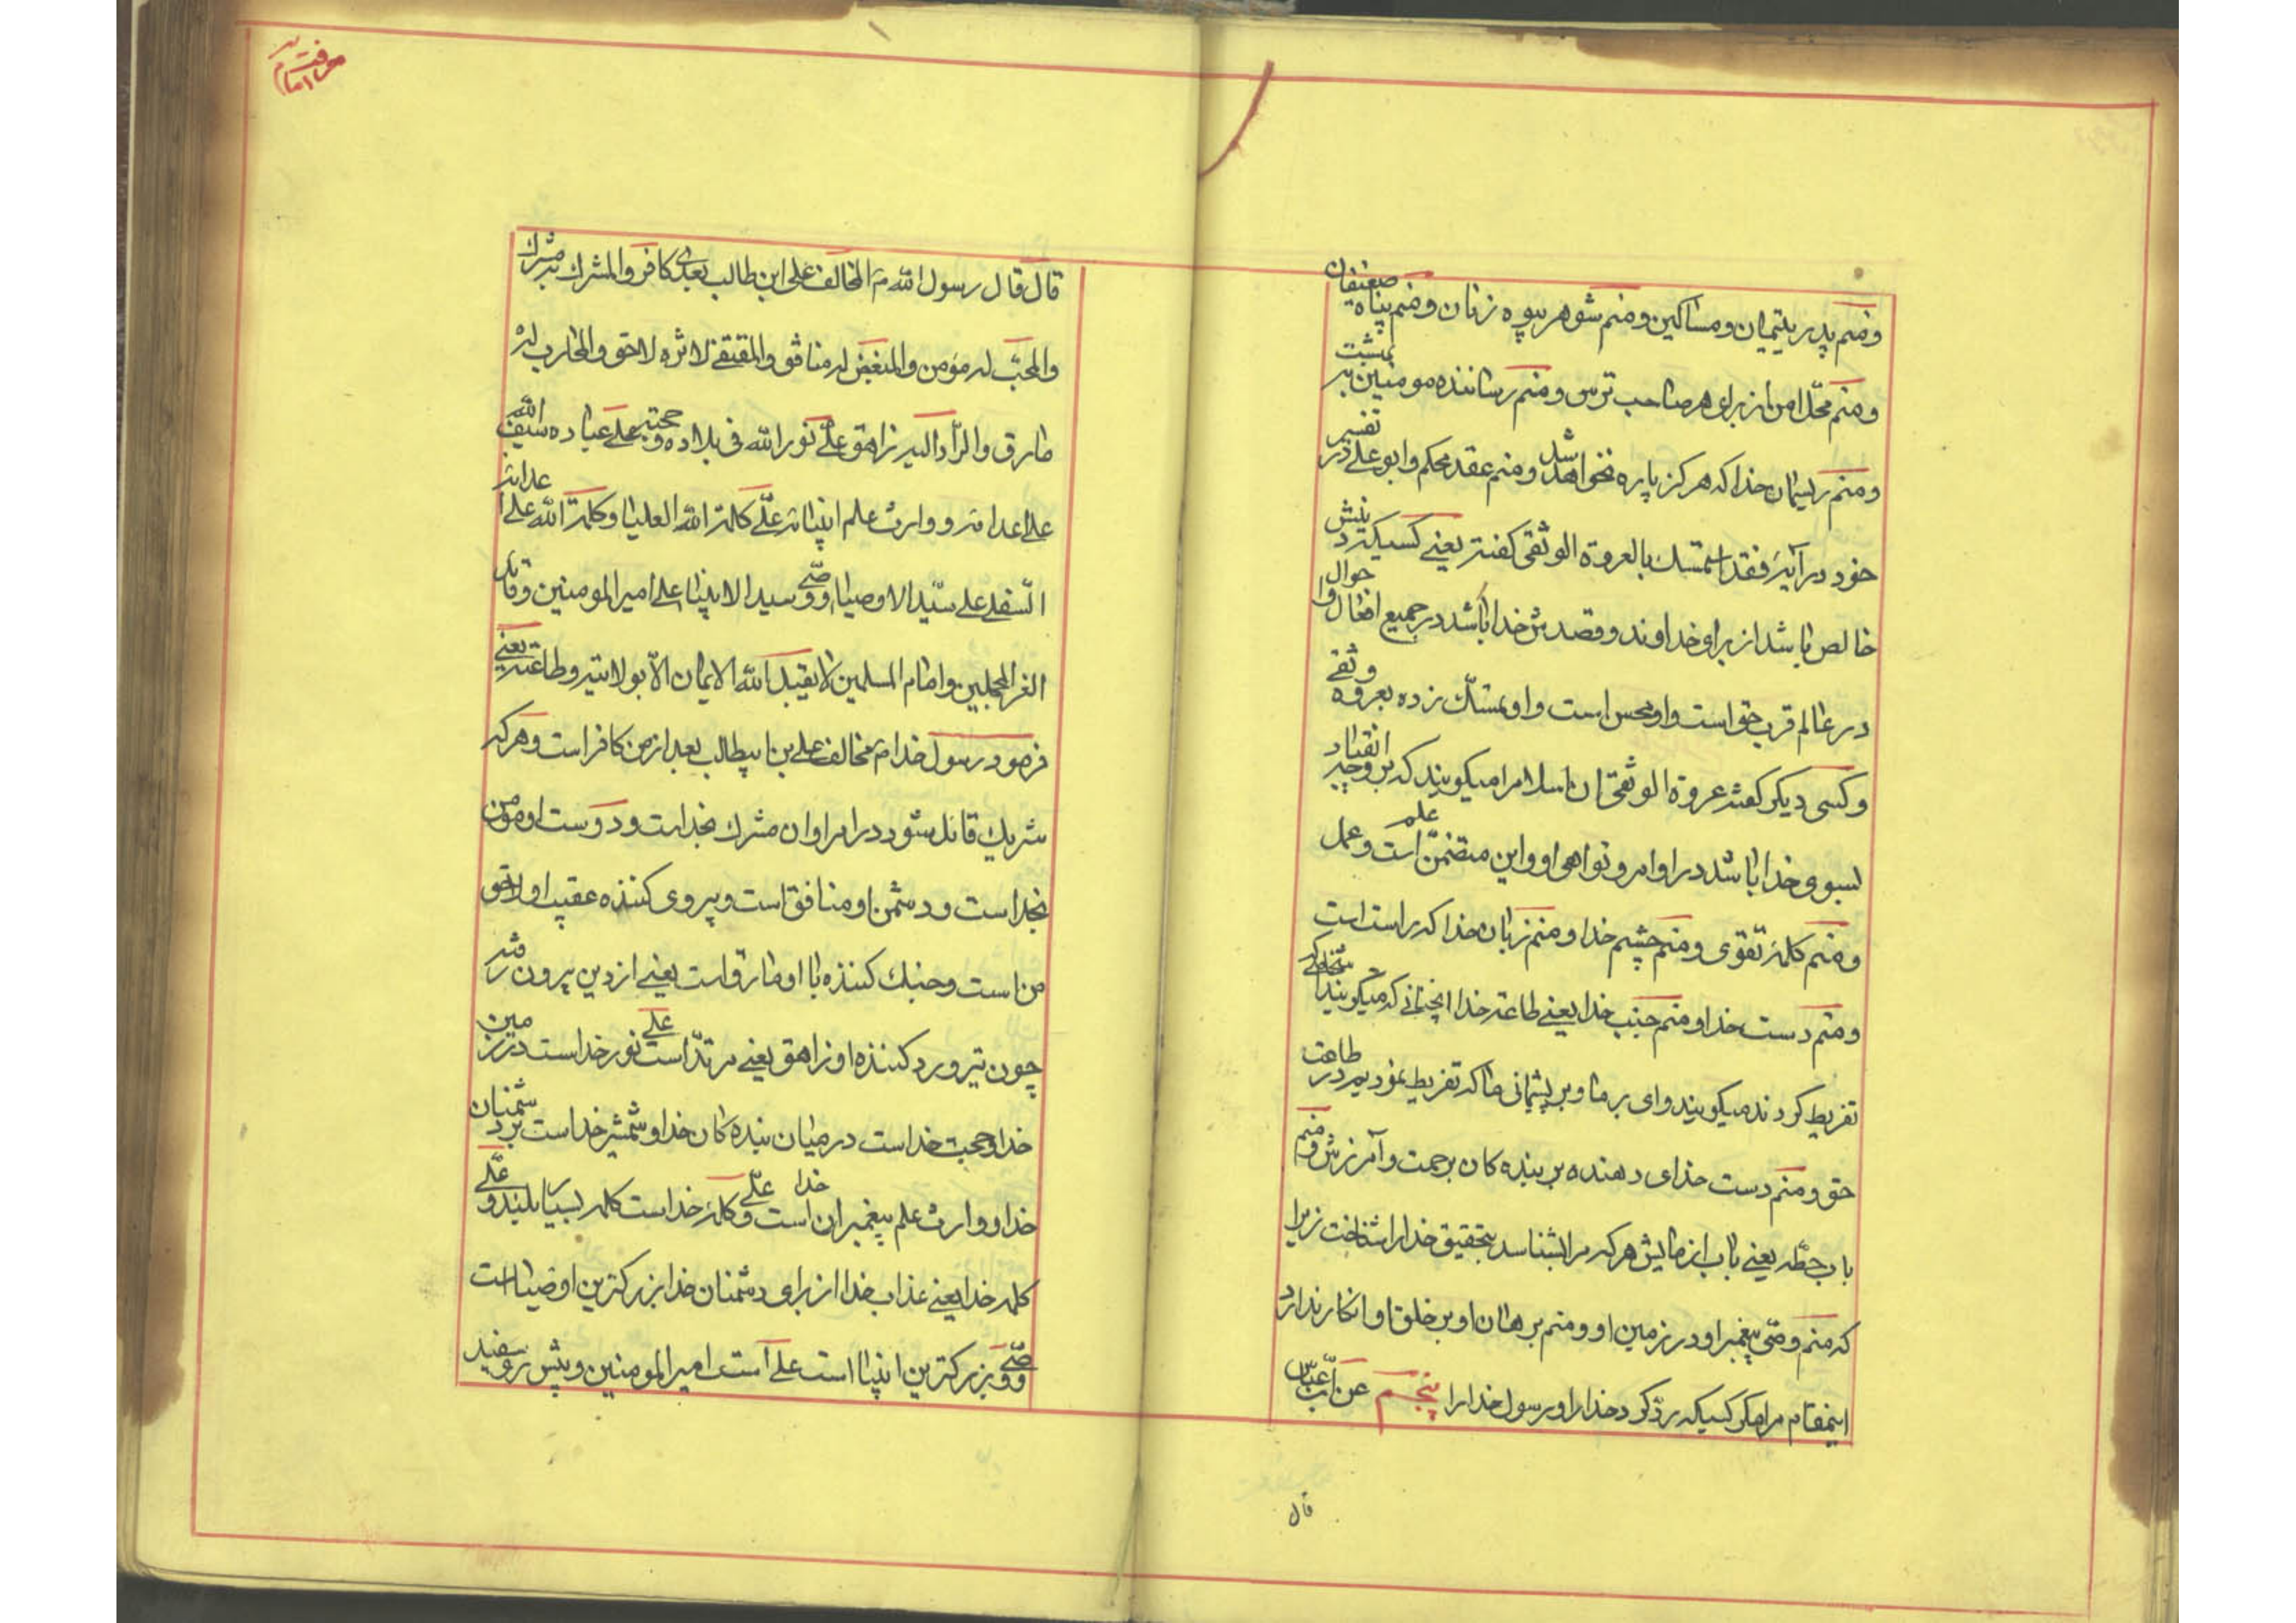 ومنم پدر یتیمان ومساکین ومنم شوهر بیوه زنان ومنم پناه ضعیفان
ومنم محل امن از برای هر صاحب ترس ومنم رساننده مومنین به بهشت
ومنم ریسمان خدا که هرکز پاره نخواهد شد ومنم عقد محکم وابو علی در تفسیر
خود در آیهٔ فقد استمسک بالعروة الوثقی کفته یعنی کسیکه دینش
خالص باشد از برای خداوند وقصدش خدا باشد در جمیع افعال واحوال
در عالم قرب حق است واو محسن است واو تمسک زده بعروه وثقی
وکسی دیکر کفته عروة الوثقی ان اسلام را میکویند که بر وجه انقیاد
بسوی خدا باشد در اوامر ونواهی او واین متضمن علم است وعمل
ومنم کلمهٔ تقوی ومنم چشم خدا ومنم زبان خدا که راست است
ومنم دست خدا ومنم جنب خدا یعنی طاعة خدا انچنانی که میکویند
تفریط کردند میکویند وای بر ما وبر پشیمانی ما که تفریط نمودیم در طاعت
حق ومنم دست خدای دهنده بر بنده کان برحمت وآمرزش ومنم
باب حطّه یعنی باب ازمایش هرکه مرا بشناسد بتحقیق خدا را شناخت زیرا
که منم وصی پیغمبر او در زمین او ومنم برهان او بر خلق او انکار ندارد
اینمقام مرا مکر کسیکه ردّ کرد خدا را ورسول خدا را پنجم عن ابن عباس
قال
معرفت امام
قال قال رسول الله ص المخالف علی ابن طالب بعدی کافر والمشرک به مشرک
والمحبّ له مؤمن والمبغض له منافق والمقتفی لاثره لاحق والمحارب له
مارق والرّاد الیه زاهق علیّ نور الله فی بلاده وحجته علی عباده سیف الله
علی اعدائه ووارث علم انبیائه علیّ کلمة الله العلیا وکلمة الله علی اعدائه
السفلی علی سیّد الاوصیاء ووصیّ سید الانبیاء علی امیر المومنین وقائد
الغر المحجلین وامام المسلمین لا یقبل الله الایمان الاّ بولایته وطاعته یعنی
فرمود رسول خدا ص مخالف علی بن ابیطالب بعد از من کافر است وهرکه
شریک قائل شود در امر او ان مشرک بخداست ودوست او مومن
بخداست ودشمن او منافق است وپیروی کننده عقب او لاحق
من است وجنک کننده با او مارق است یعنی از دین بیرون رفته
چون تیر ورد کننده او زاهق یعنی مرتدّ است علی نور خداست در زمین
خدا وحجت خداست در میان بنده کان خدا وشمشیر خداست بر دشمنان
خدا ووارث علم پیغمبران خدا است وعلیّ کلمهٔ خداست کلمه بسیار بلند وعلّی
کلمه خدا یعنی عذاب خدا از برای دشمنان خدا بزرکترین اوصیا است
ووصیّ بزرکترین انبیا است علی است امیر المومنین وپیش رو سفید